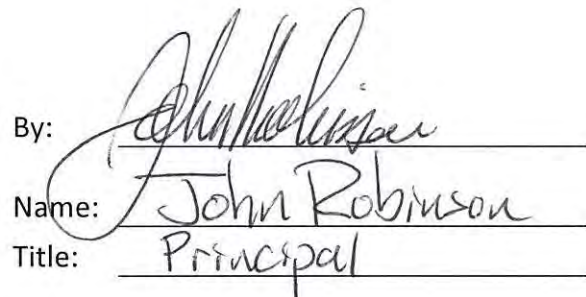 By: John Robinson
Name: John Robinson
Title: Principal